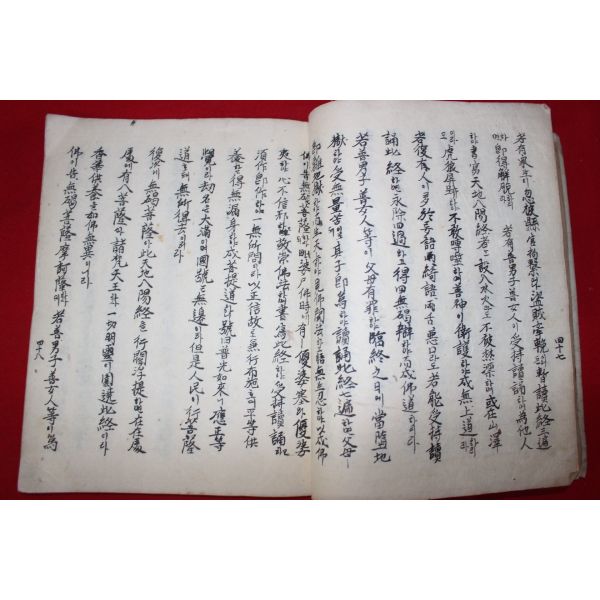 四十七
若有衆生이 忽被縣官拘繫하고 盜賊牽輓이라도 暫讀此経三遍
하면 即得解脫하리라 若有善男子善女人이 受持讀誦하야 爲他人
하야 書寫天地八陽経者는 設入水火라도 不被焚漂하며 或在山澤
이라도 虎狼屛跡하야 不敢嚼噬하며 善神이 衛護하야 成無上道하리라
若復有人이 多於妄語綺語兩舌惡口라도 若能受持讀
誦此経하면 永除四過하고 得四無碍辯하야 而成佛道하리라
若善男子善女人等이 父母有罪하야 臨終之日에 當墮地
獄하야 受無量苦라도 其子卽爲하야 讀誦此経七遍하면 父母
卽離地獄하야 而生天上하야 見佛聞法하고 悟無生忍하야 以成佛
道하리라 佛告無碍菩薩하사대 毘婆尸佛時에 有優婆塞優婆
夷하야 心不信邪하고 敬崇佛法하야 書寫此経하야 受持讀誦하고
須作卽作하야 一無所問하고 以正信故로 兼行布施하야 平等供
養하고 得無漏身하야 成菩提道하니 號曰普光如來應正等
覺이라 劫名은 大滿이오 國號는 無邊이라 但是人民이 行菩薩
道호대 無所得法이러라
復次無碍菩薩아 此天地八陽経이 行閻浮提하면 在在處
處에 有八菩薩과 諸梵天王과 一切明靈이 圍遶此経하야
香華供養을 如佛無異니라
佛이 告無碍菩薩摩訶薩하사대 若善男子善女人等이 爲
四十八